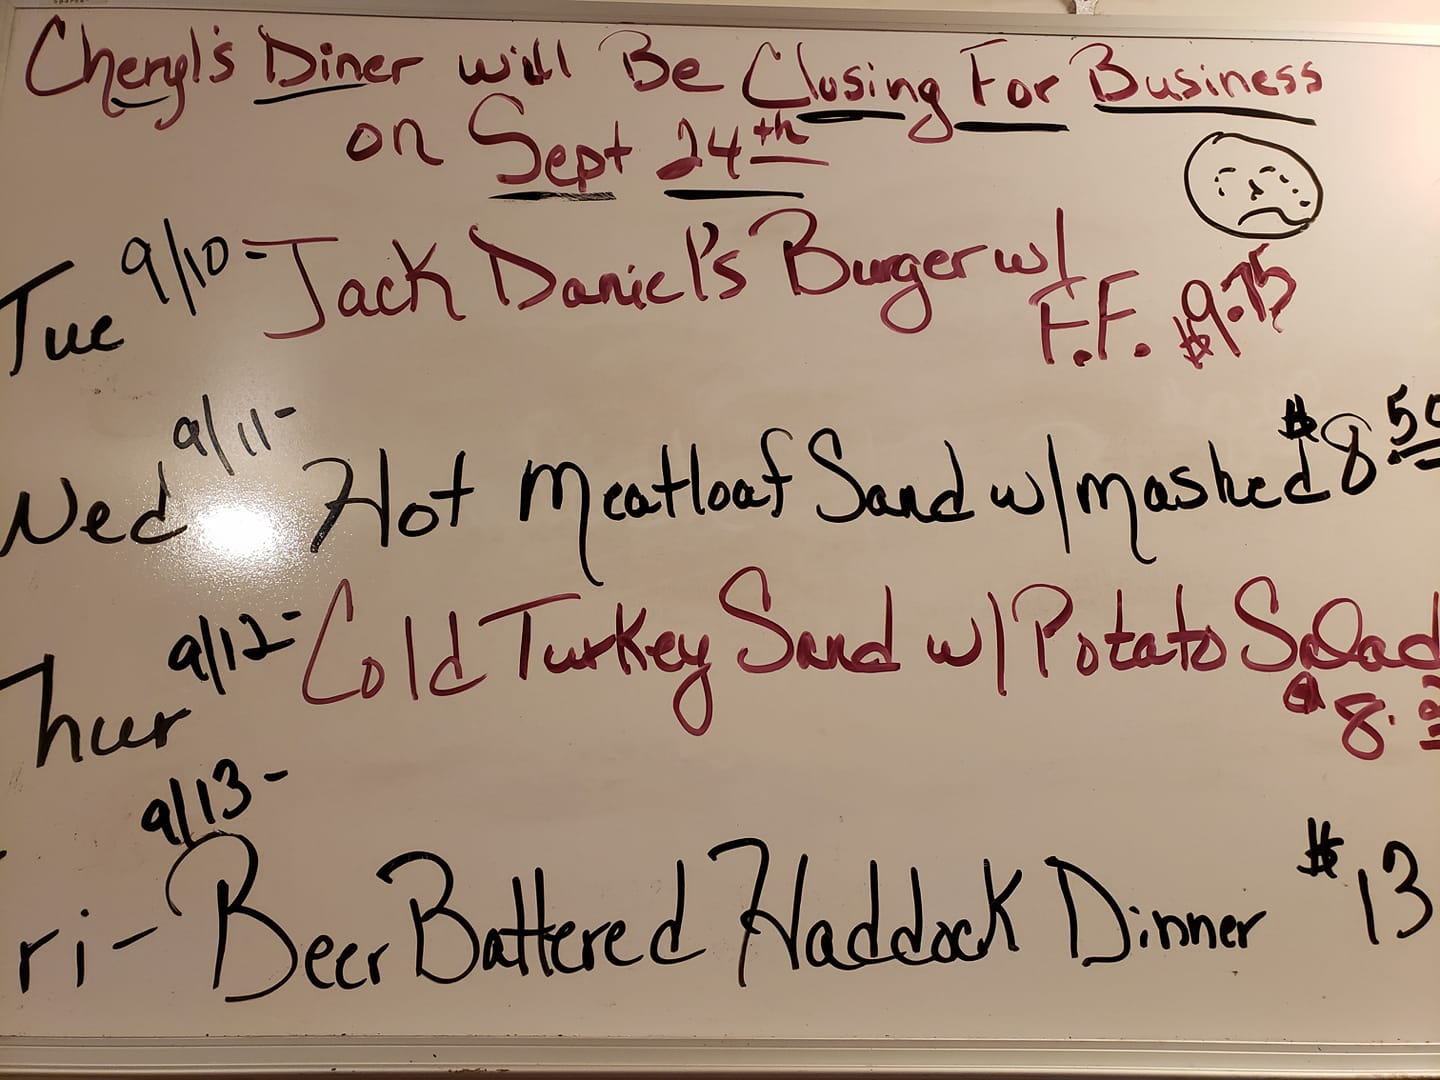 Cheryl's Diner will Be Closing For Business
on Sept 24th
Tue 9/10- Jack Daniel's Burger w/
F.F. $9.75
Wed 9/11- Hot Meatloaf Sand w/ Mashed $8.50
Thur 9/12- Cold Turkey Sand w/ Potato Salad
$8.
9/13-
ri- Beer Battered Haddock Dinner $13